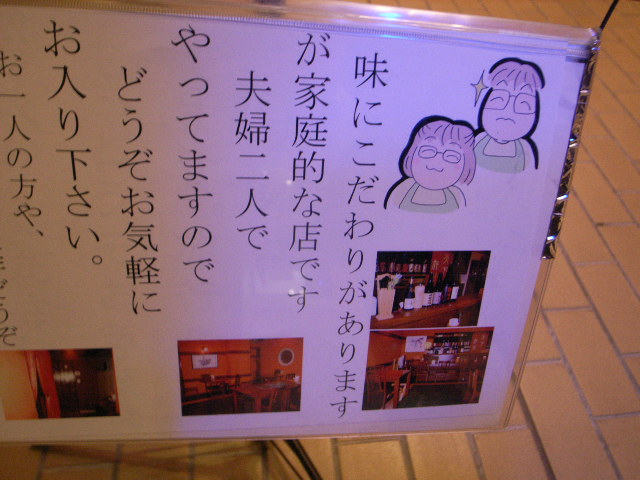 味にこだわりがあります
が家庭的な店です
夫婦二人で
やってますので
どうぞお気軽に
お入り下さい。
お一人の方や、